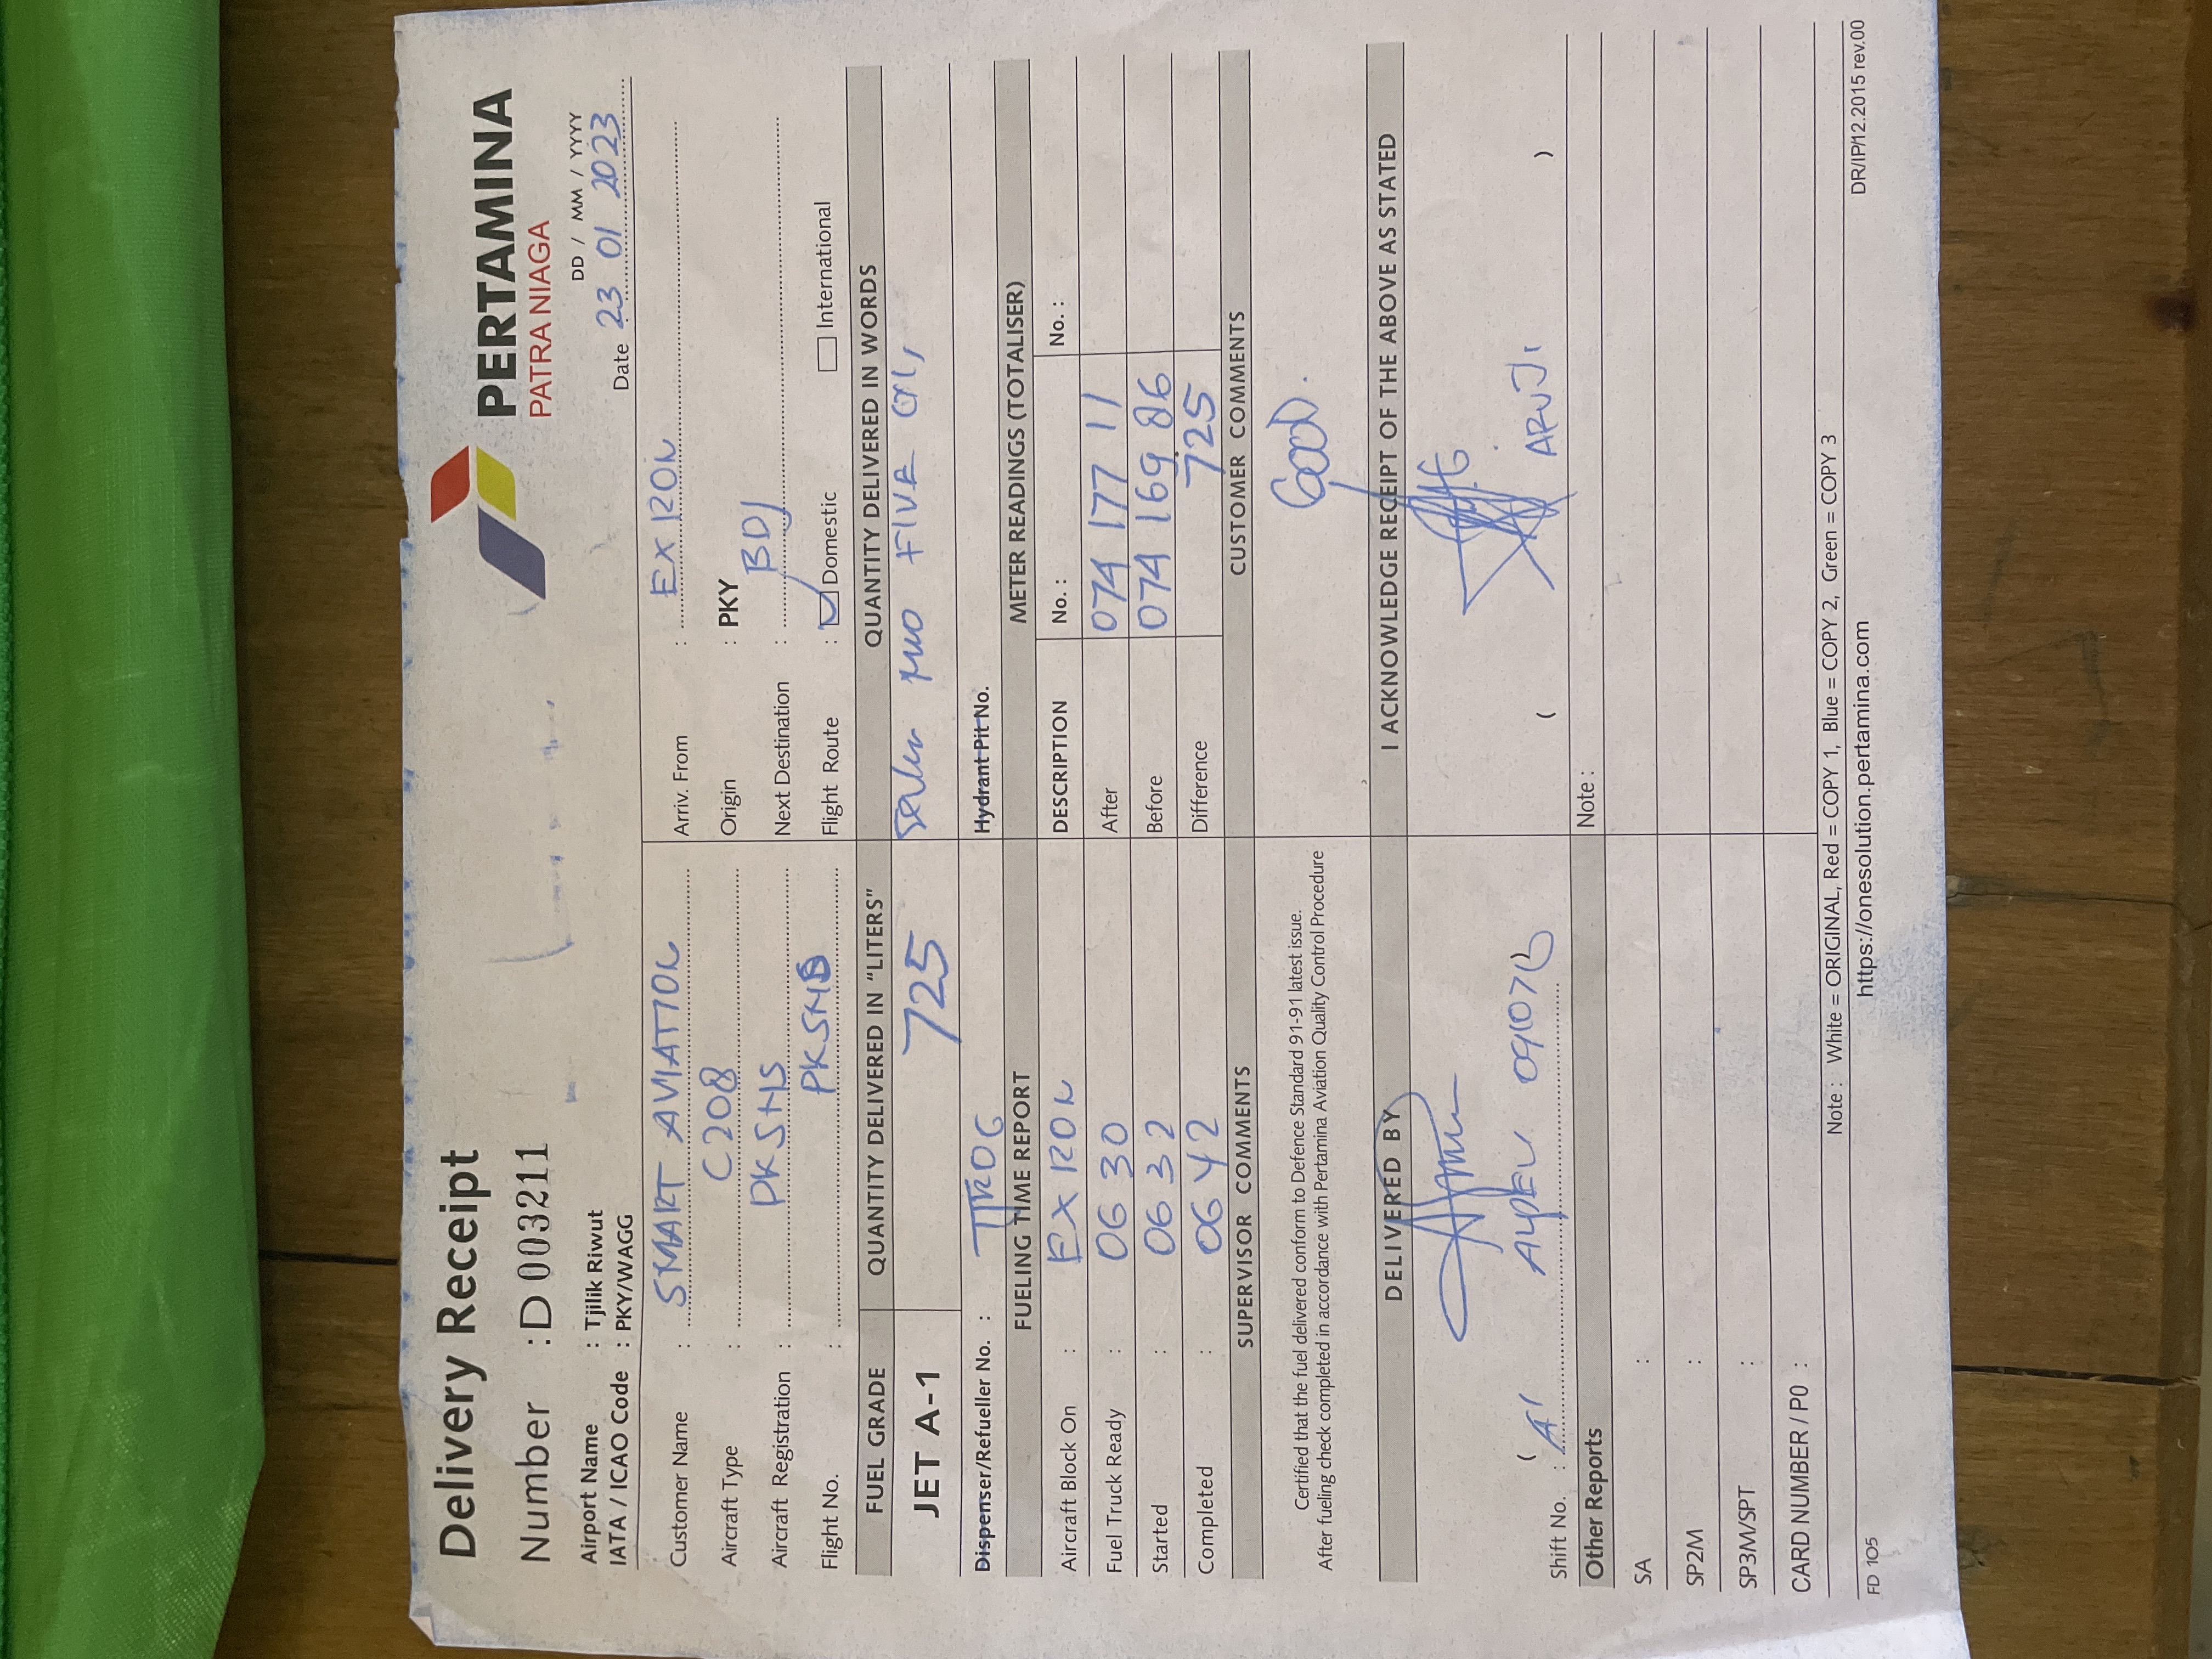 Delivery Receipt
PERTAMINA
PATRA NIAGA
Number : D 003211
DD / MM / YYYY
Date 23 01 2023
Airport Name : Tjilik Riwut
IATA / ICAO Code : PKY/WAGG
Customer Name : SMART AVIATION
Arriv. From : EX RON
Aircraft Type : C208
Origin : PKY
Aircraft Registration : PKSNS
Next Destination : BDJ
Flight No. : PKSNS
Flight Route : Domestic International
FUEL GRADE
QUANTITY DELIVERED IN "LITERS"
QUANTITY DELIVERED IN WORDS
JET A-1
725
FIVE
Dispenser/Refueller No. :
Hydrant Pit No.
FUELING TIME REPORT
METER READINGS (TOTALISER)
Aircraft Block On : EX RON
DESCRIPTION No. : No. :
Fuel Truck Ready : 06 30
After 074 177 11
Started : 06 32
Before 074 169 86
Completed : 06 42
Difference 725
SUPERVISOR COMMENTS
CUSTOMER COMMENTS
GOOD.
Certified that the fuel delivered conform to Defence Standard 91-91 latest issue.
After fueling check completed in accordance with Pertamina Aviation Quality Control Procedure
DELIVERED BY
I ACKNOWLEDGE RECEIPT OF THE ABOVE AS STATED
( )
Shift No. :
Other Reports
Note :
SA :
SP2M :
SP3M/SPT :
CARD NUMBER / P0 :
Note : White = ORIGINAL, Red = COPY 1, Blue = COPY 2, Green = COPY 3
FD 105
https://onesolution.pertamina.com
DR/IP/12.2015 rev.00